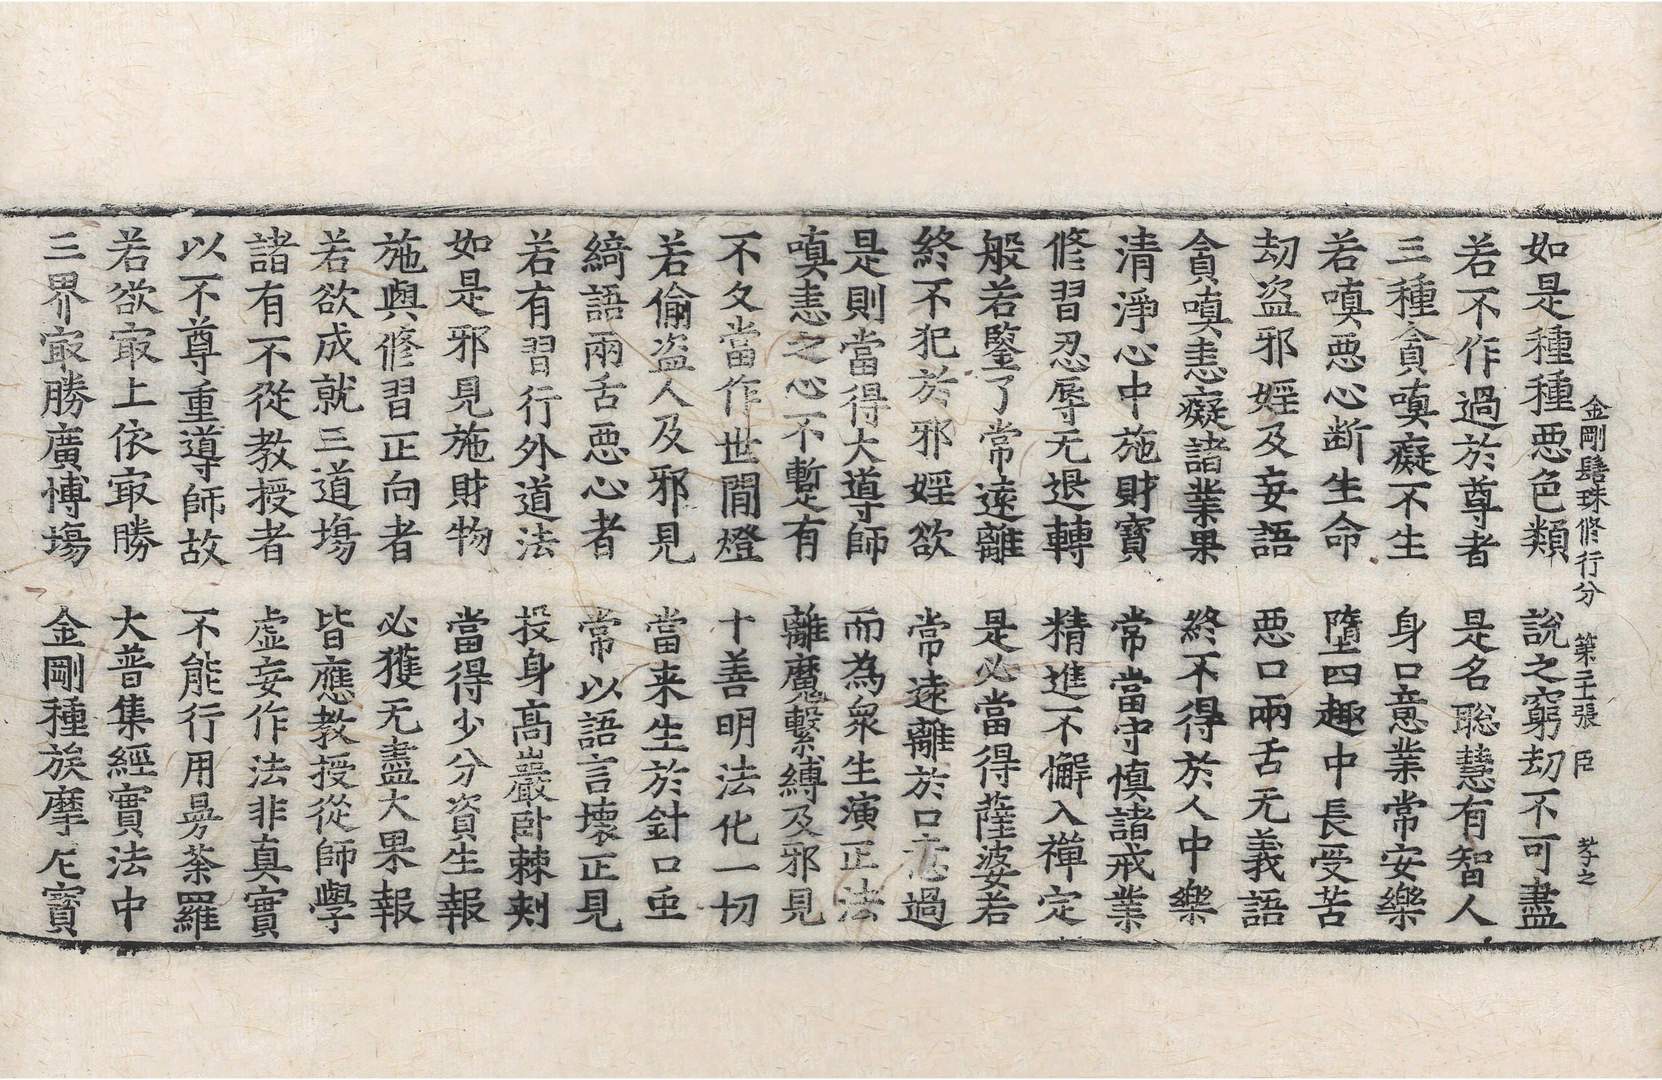 金剛髻珠修行分 第二張 臣 孝之
如是種種惡色類 說之窮劫不可盡
若不作過於尊者 是名聡慧有智人
三種貪嗔癡不生 身口意業常安樂
若嗔惡心断生命 墮四趣中長受苦
劫盗邪婬及妄語 惡口兩舌无義語
貪嗔恚癡諸業果 終不得於人中樂
清淨心中施財寶 常當守慎諸戒業
修習忍辱无退轉 精進不懈入禪定
般若鑒了常遠離 是必當得薩婆若
終不犯於邪婬欲 常遠離於口 過
是則當得大導師 而為衆生演正法
嗔恚之心不暫有 離魔繫縛及邪見
不久當作世間燈 十善明法化一切
若偷盗人及邪見 當来生於針口虫
綺語兩舌惡心者 常以語言壞正見
若有習行外道法 投身高巖卧棘刺
如是邪見施財物 當得少分資生報
施與修習正向者 必獲无盡大果報
若欲成就三道場 皆應教授從師學
諸有不從教授者 虛妄作法非真實
以不尊重導師故 不能行用曼荼羅
若欲㝡上依㝡勝 大普集經實法中
三界㝡勝廣博場 金剛種族摩尼寶